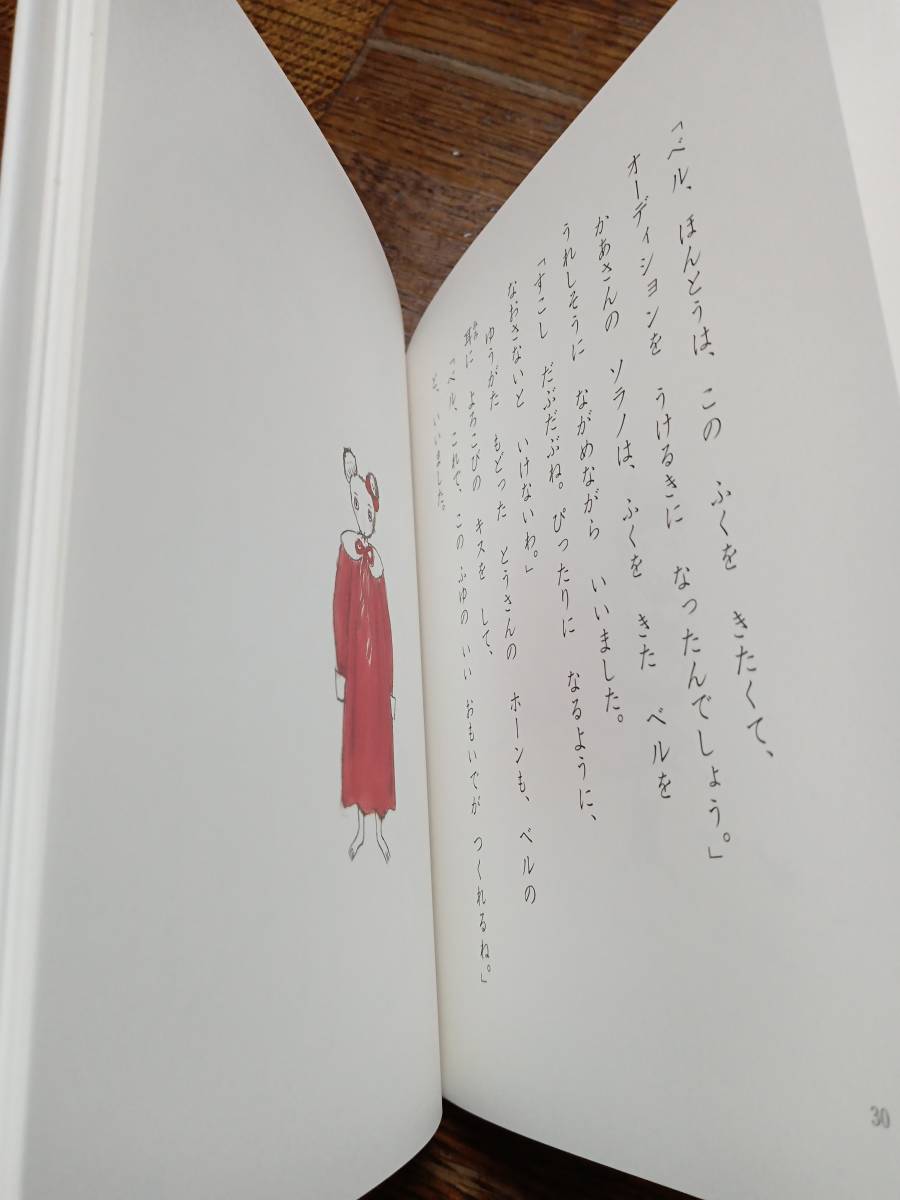 「ベル、ほんとうは、この ふくを きたくて、
オーディションを うけるきに なったんでしょう。」
かあさんの ソラノは、ふくを きた ベルを
うれしそうに ながめながら いいました。
「すこし だぶだぶね。ぴったりに なるように、
なおさないと いけないわ。」
ゆうがた もどった とうさんの ホーンも、ベルの
耳に よろこびの キスを して、
「ベル、これで、この ふゆの いい おもいでが つくれるね。」
と、いいました。
30